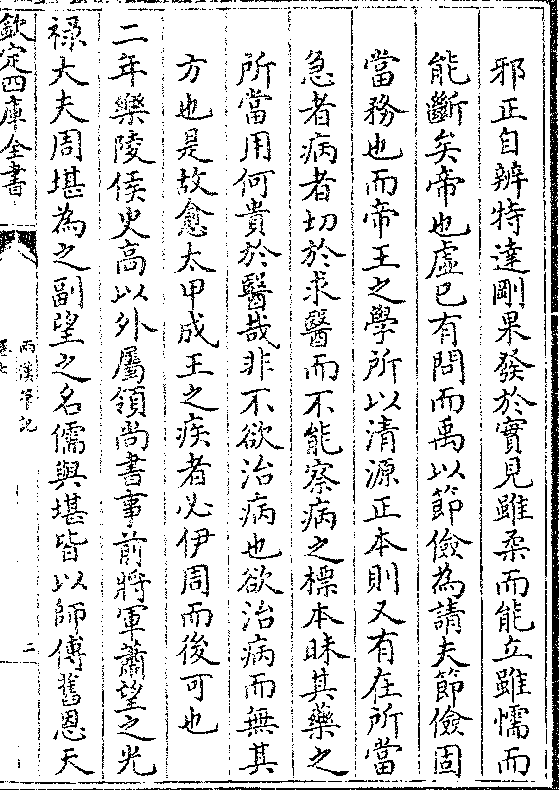 邪正自辨特達剛果發於實見雖柔而能立雖懦而
能斷矣帝也虛已有問而禹以節儉為請夫節儉固
當務也而帝王之學所以清源正本則又有在所當
急者病者切於求醫而不能察病之標本昧其藥之
所當用何貴於醫哉非不欲治病也欲治病而無其
方也是故愈太甲成王之疾者必伊周而後可也
二年樂陵侯史高以外屬領尚書事前將軍蕭望之光
禄大夫周堪為之副望之名儒與堪皆以師傅舊恩天
欽定四庫全書
兩漢筆記
卷七
二